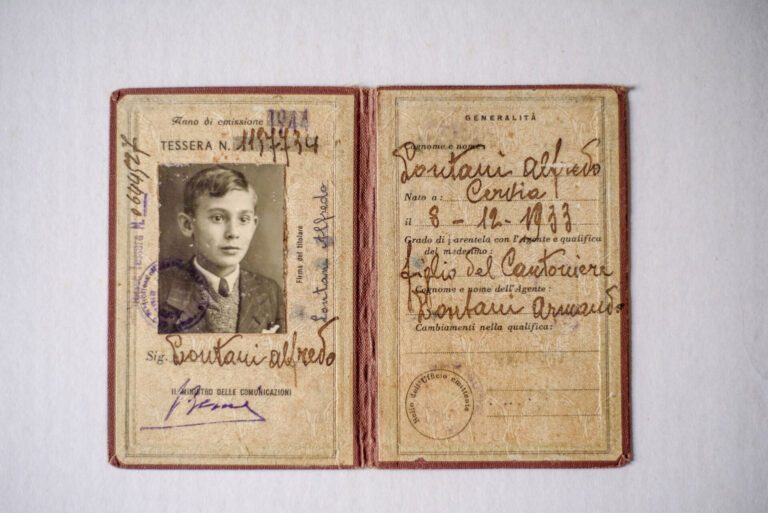 Anno di emissione 1944
TESSERA N. 1197734
Firma del titolare
Lontani Alfredo
Sig. Lontani Alfredo
IL MINISTRO DELLE COMUNICAZIONI
GENERALITÀ
Cognome e nome:
Lontani Alfredo
Nato a: Cervia
il 8-12-1933
Grado di parentela con l'Agente e qualifica
del medesimo:
figlio del Cantoniere
Cognome e nome dell'Agente:
Lontani Armando
Cambiamenti nella qualifica:
Bollo dell'Ufficio emittente